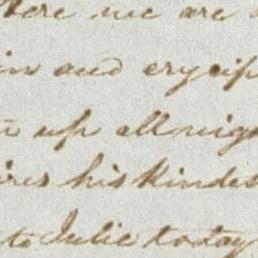 Here we are
and erysip
up all nig
his kindes
to Julie today